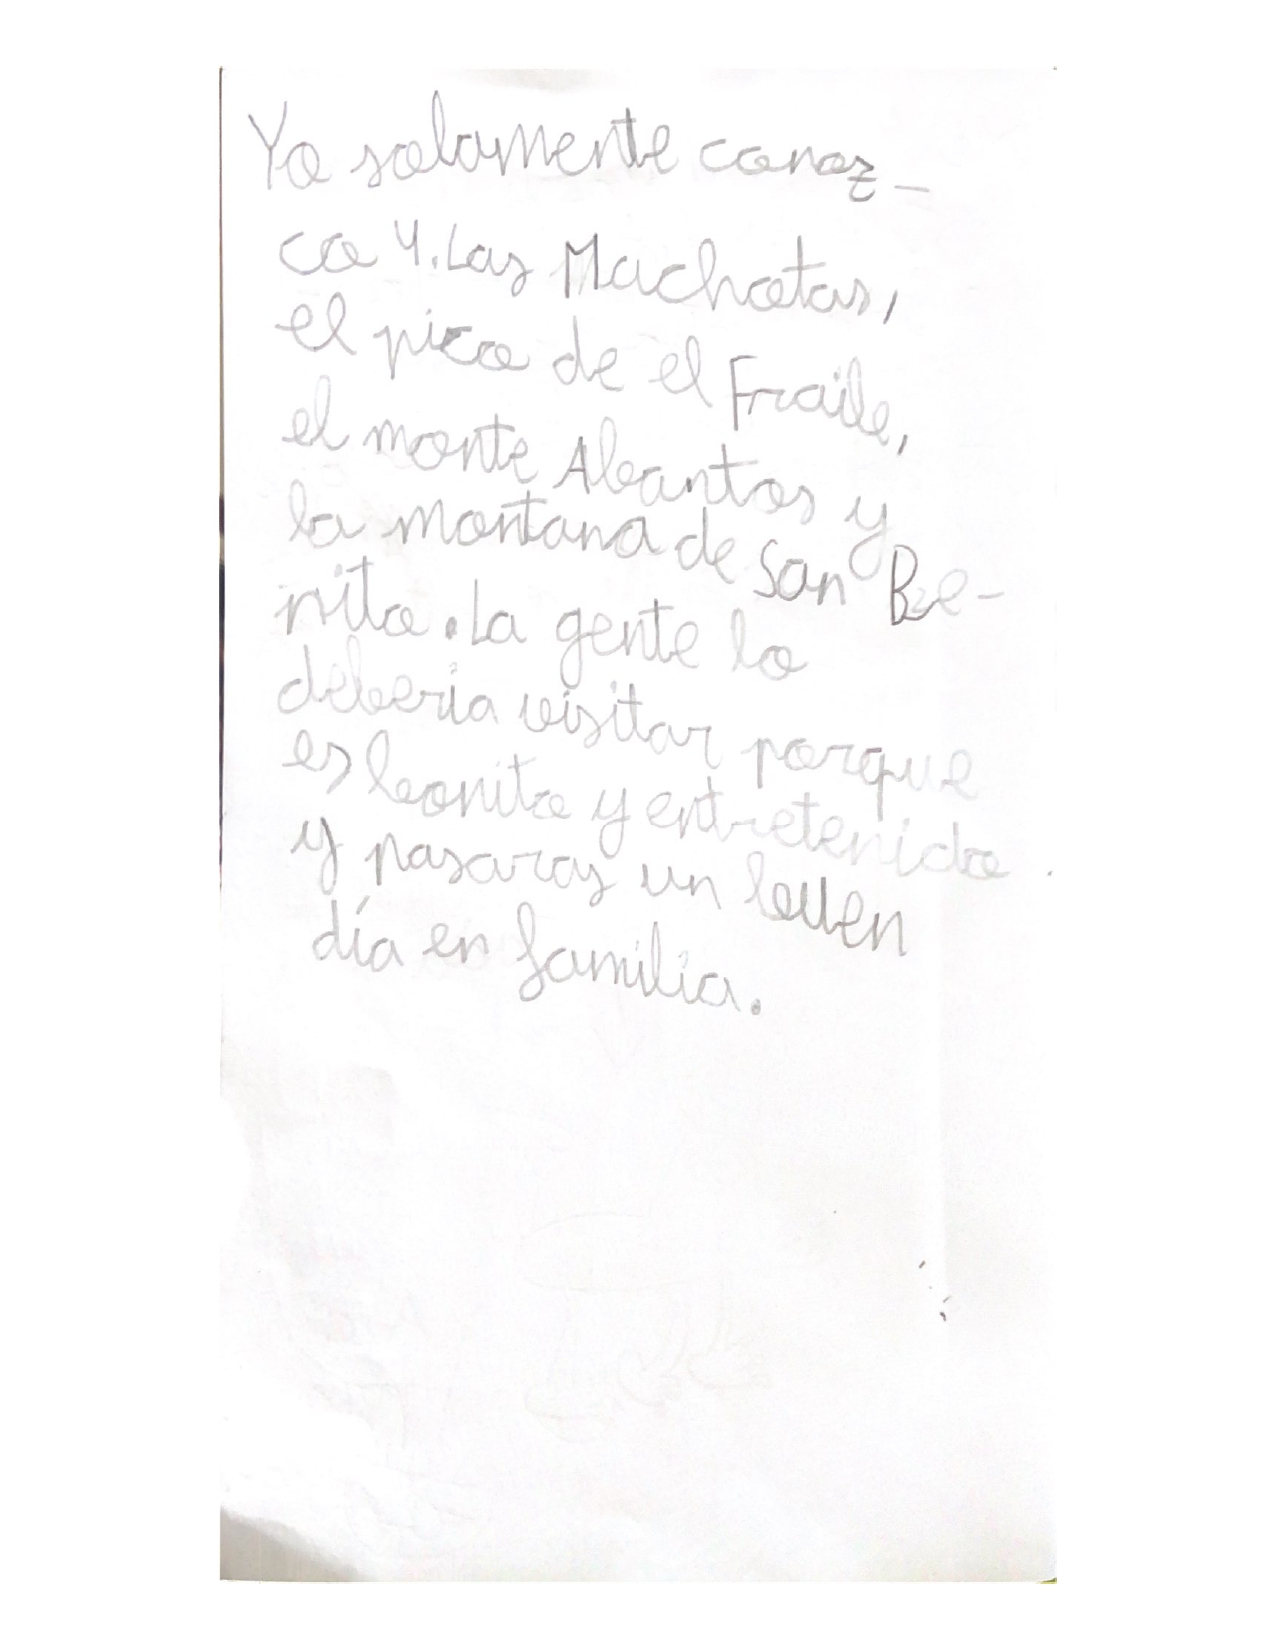 Yo solamente conoz-
co 4. Las Machotas,
el pico de el Fraile,
el monte Abantos y
la montana de San Be-
nito. La gente lo
deberia visitar porque
es bonito y entretenido
y pasaras un buen
día en familia.